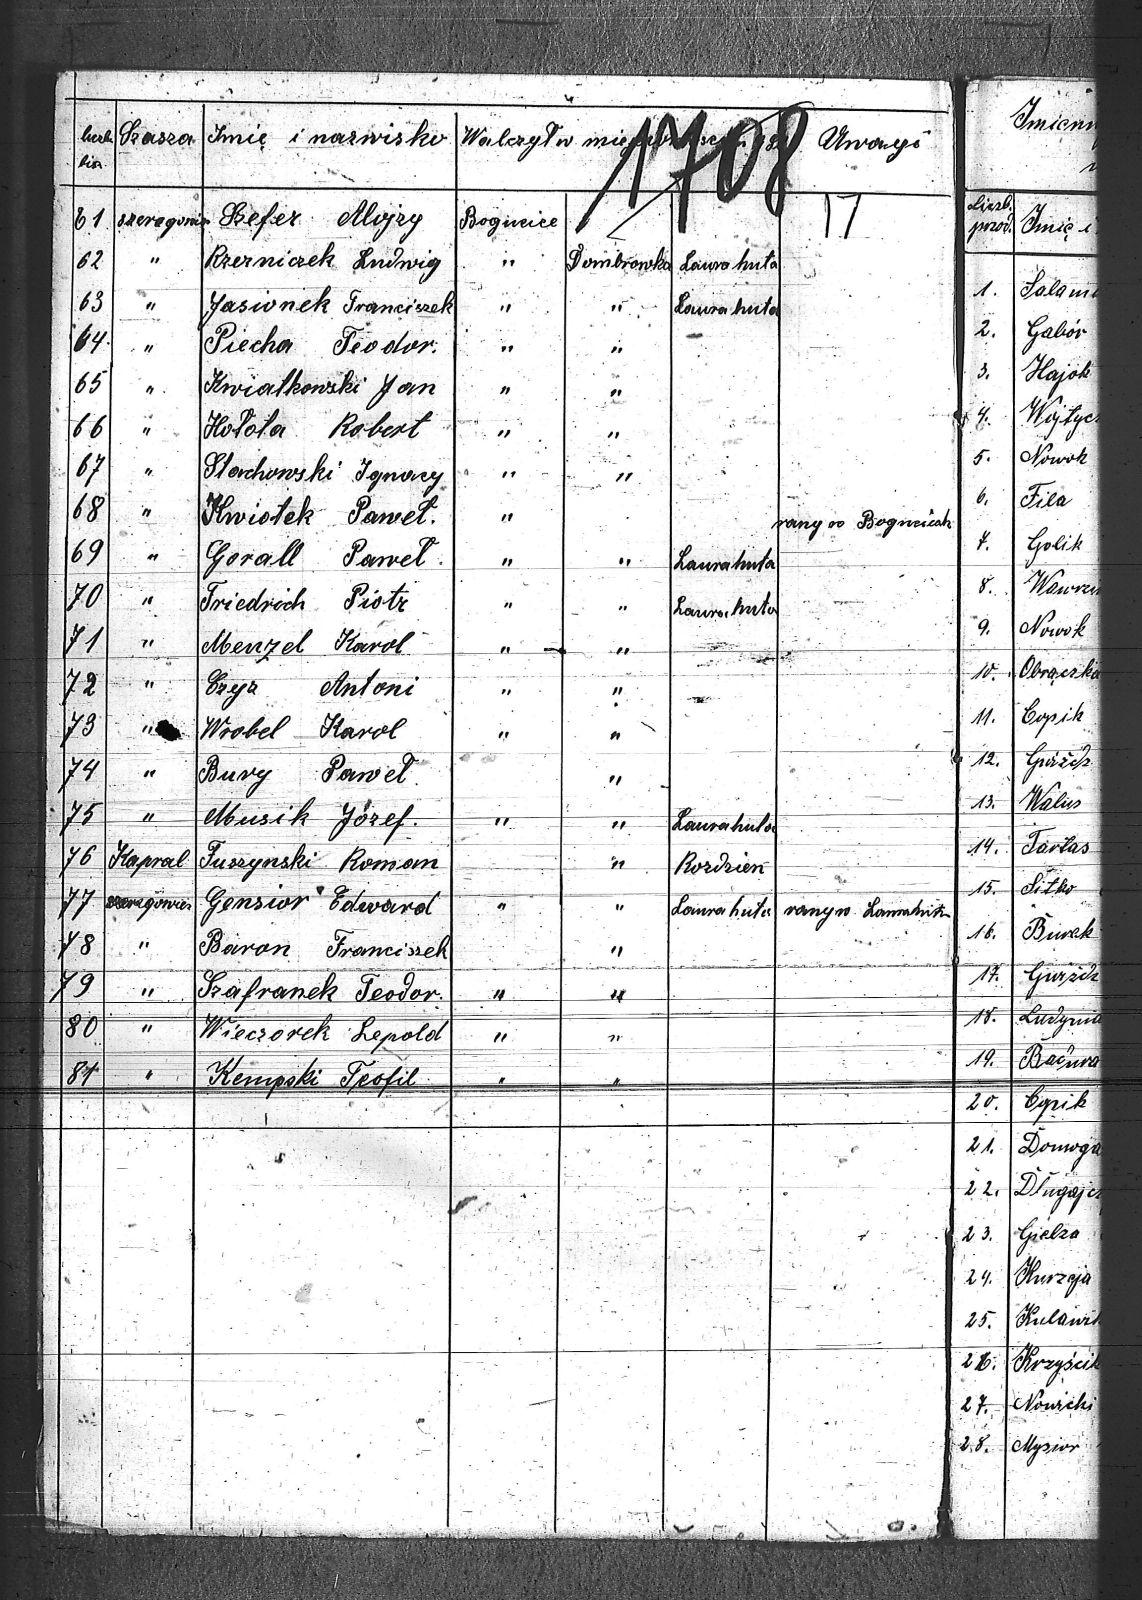 Szarża Imię i nazwisko Walczył w Uwagi
1708
17
61 szeregowiec Szefer Alojzy Bogucice
62 " Rzerniczek Ludwig " Dombrowka Laurahuta
63 " Jasionek Franciszek " " Laurahuta
64 " Piecha Teodor. " "
65 " Kwiatkowski Jan " "
66 " Hołota Robert " "
67 " Stachowski Ignacy " "
68 " Kwiotek Paweł. " rany w Bogucicach
69 " Gorall Paweł. " " Laurahuta
70 " Friedrich Piotr " " Laurahuta
71 " Menzel Karol " "
72 " Czyż Antoni " "
73 " Wrobel Karol " "
74 " Bury Paweł "
75 " Musik Józef. " " Laurahuta
76 Kapral Tuszynski Roman " Rozdzien
77 szeregowiec Gensior Edward " " Laurahuta rany w
78 " Baron Franciszek "
79 " Szafranek Teodor. " "
80 " Wieczorek Lepold " "
81 " Kempski Teofil " "
Imienn
Liczb. porz. Imię i
1. Salam
2. Gabór
3. Hajok
4. Wojtyc
5. Nowok
6. Fila
7. Golik
8. Wawrzy
9. Nowok
10. Obrączka
11. Copik
12. Guźdź
13. Walus
14. Tarlas
15. Sitko
16. Burek
17. Guźdź
18. Ludyma
19.
20. Cepik
21. Domoga
22. Długajcz
23. Gielza
24. Kurzeja
25. Kulawik
26. Krzyścik
27. Nowicki
28. Mysior